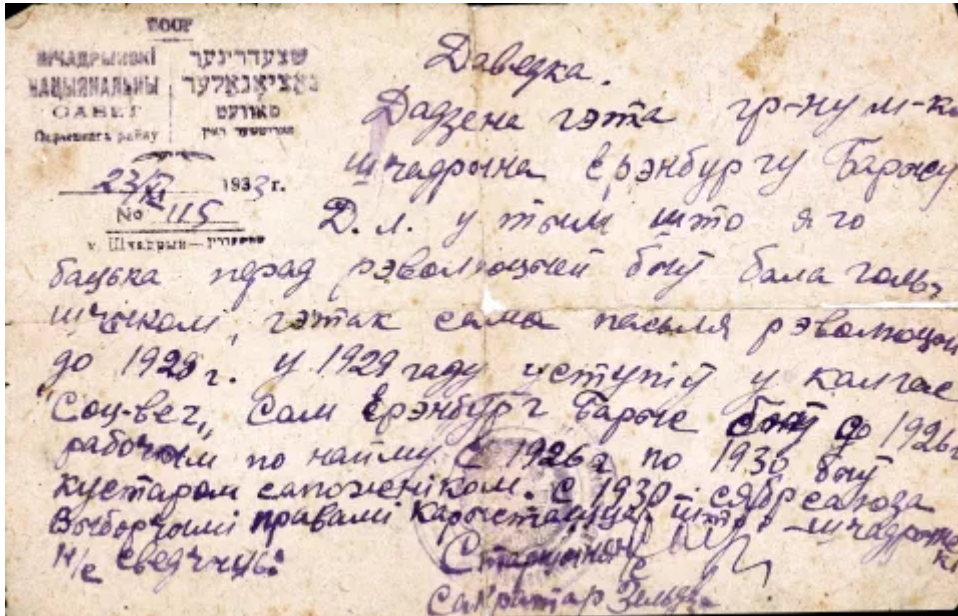 БССР
ШЧАДРЫНСКІ
НАЦЫЯНАЛЬНЫ
САВЕТ
Парыцкага раёну
שצעדרינער
נאציאנאלער
סאוועט
23/XI 1933 г.
№ 115
м. Шчадрын —
Даведка.
Дадзена гэта гр-ну м-ка
Шчадрына Ерэнбургу Барысу
Д. Л. у тым што яго
бацька перад рэвалюцыей быў балаголь-
шчыком, гэтак сама пасьля рэвалюцыи
до 1929 г. У 1929 году уступіў у калгас
"Соц-вег", Сам Ерэнбург Барыс быў до 1926 г
рабочым по найму С 1926 г по 1930 быў
кустаром сапожніком. С 1930 - сябр саюза
Выборчымі правамі карыстаецца, што Шчадрынскі
н/с сведчыць:
Старшыня
Сакратар